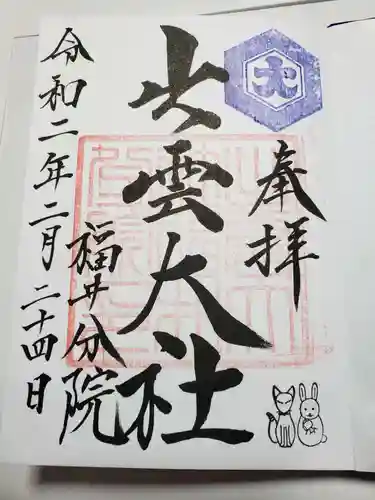 奉拝
出雲大社
福井分院
令和二年二月二十四日
大